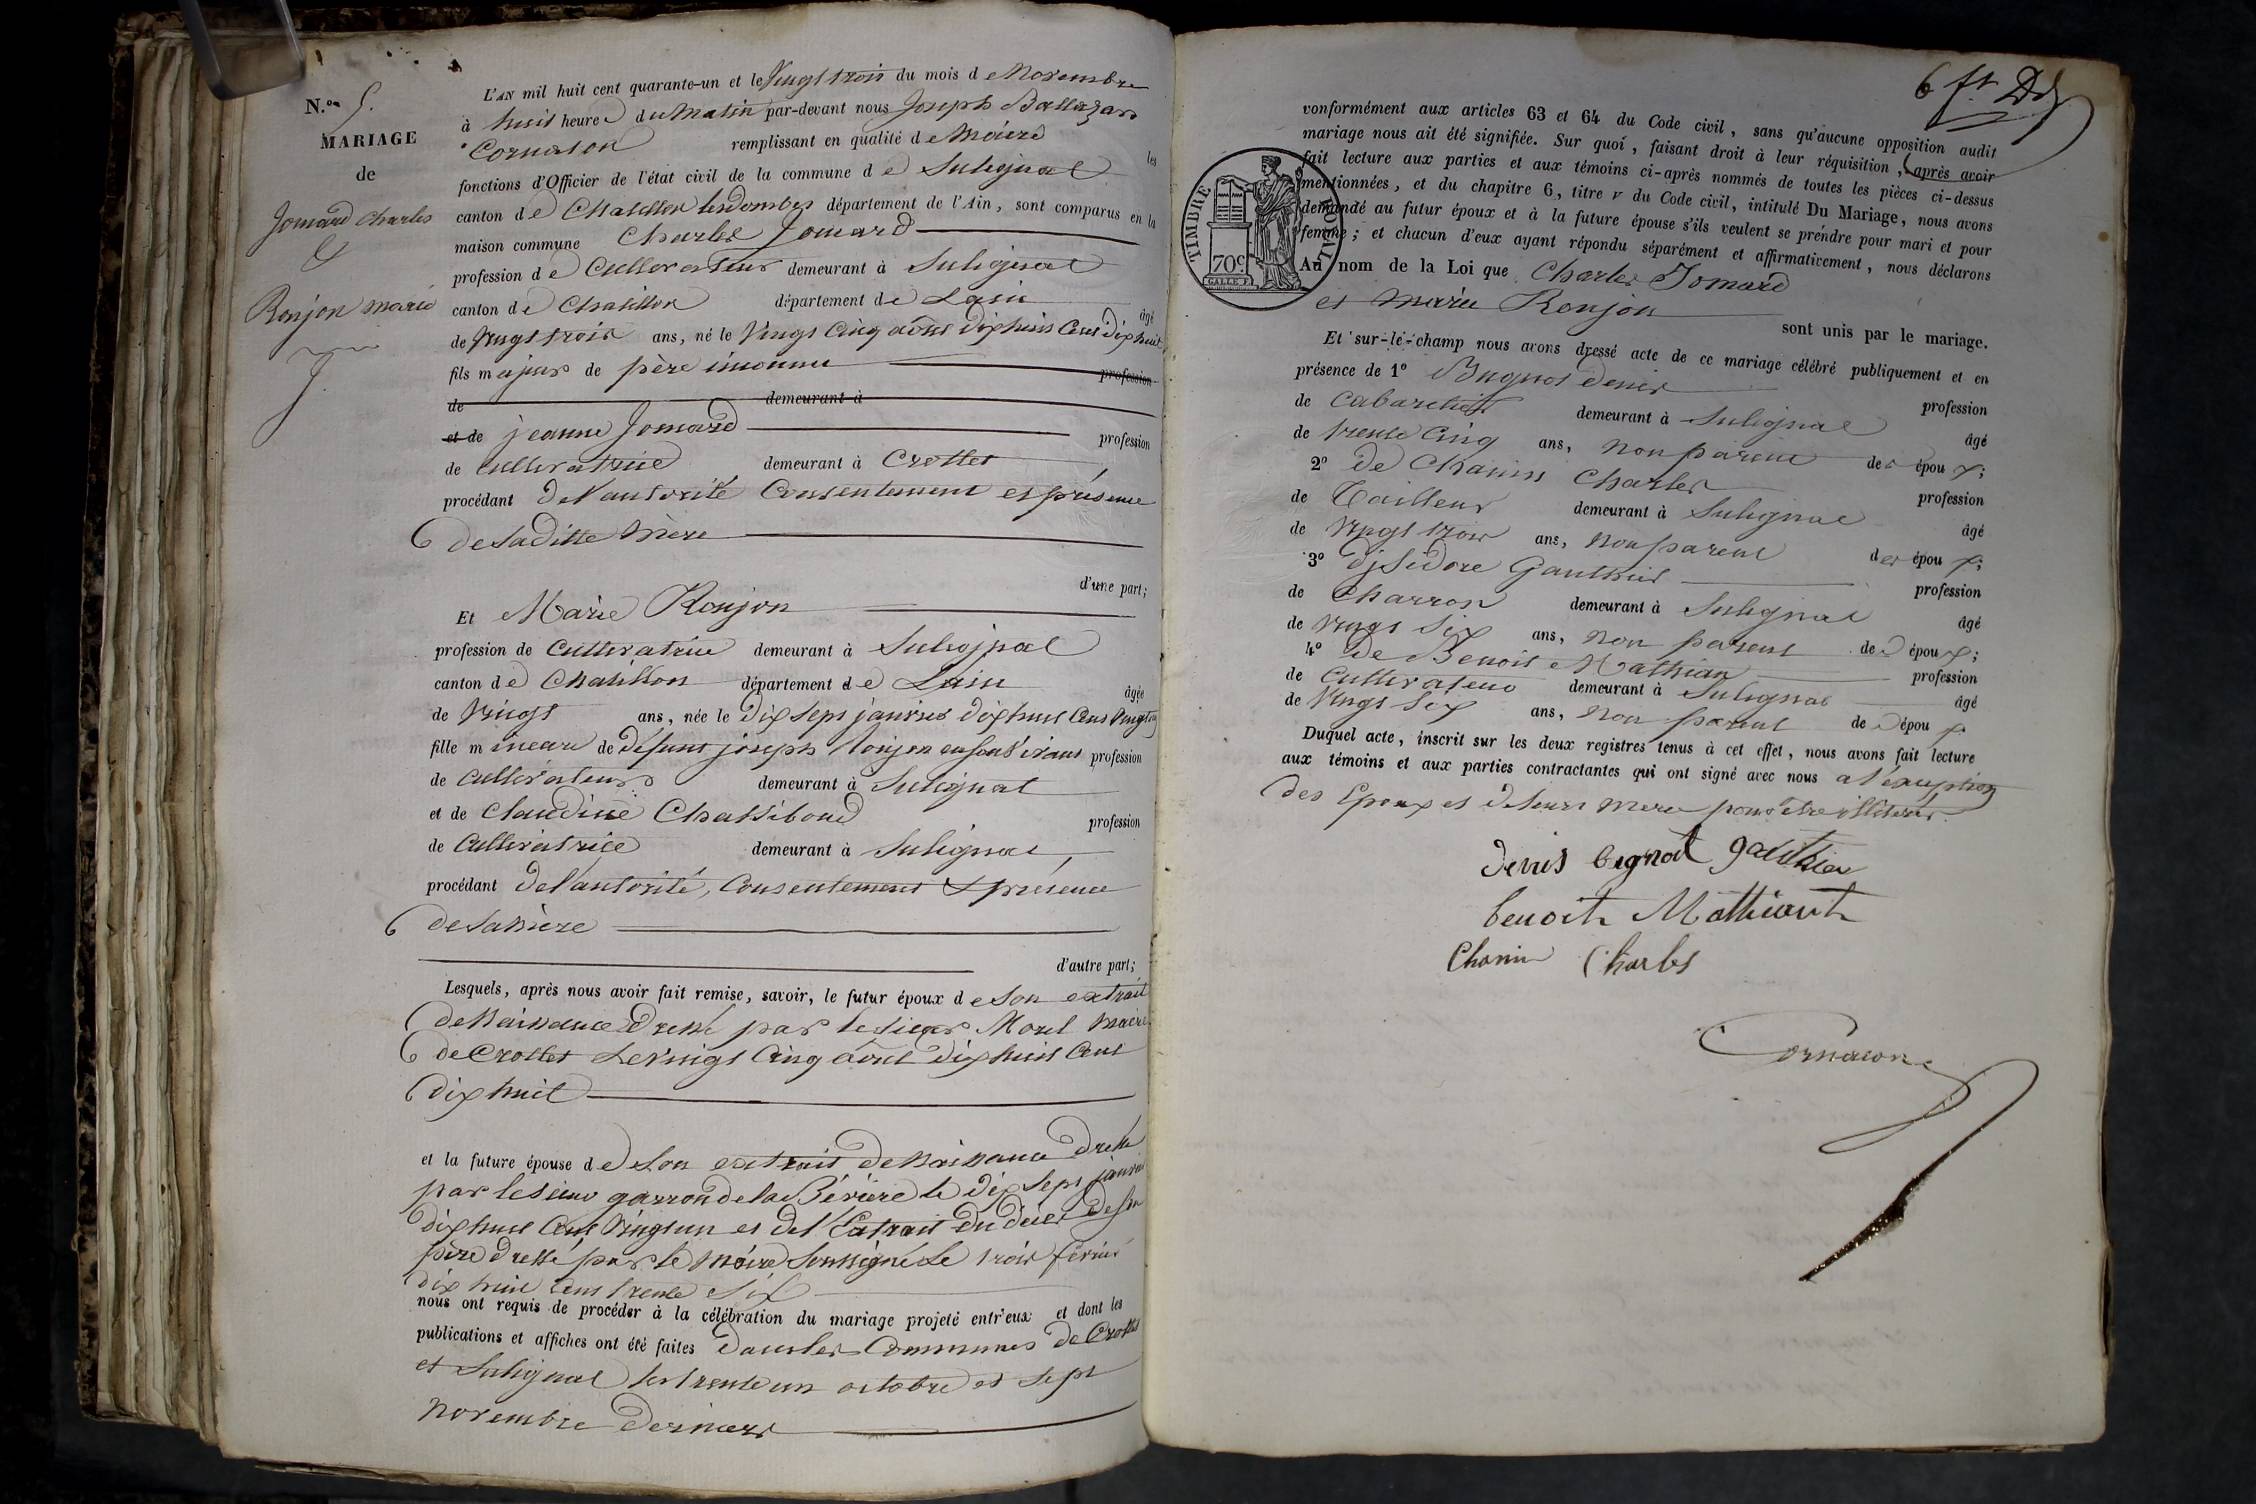 N.º 5.
MARIAGE
de
Jomard Charles
&
Ronjon marie
L'AN mil huit cent quarante-un et le Vingt trois du mois de Novembre
à huit heure du Matin par-devant nous Joseph Baltazar
Cornaton remplissant en qualité de Maire les
fonctions d'Officier de l'état civil de la commune de Sulignat
canton de Chatillon lesdombes département de l'Ain, sont comparus en la
maison commune Charles Jomard
profession de Cultivateur demeurant à Sulignat
canton de Chatillon département de Lain âgé
de Vingt trois ans, né le Vingt Cinq août Dix huit Cent Dix huit
fils majeur de père inconnu profession
de demeurant à
et de jeanne Jomard profession
de cultivatrice demeurant à Crottet
procédant de l'autorité Consentement et présence
de sa ditte Mère
d'une part;
Et Marie Ronjon
profession de Cultivatrice demeurant à Sulignat
canton de Chatillon département de Lain âgée
de Vingt ans, née le Dix Sept janvier Dix huit Cent Vingt un
fille mineure de Défunt joseph Ronjon profession
de Cultivateur demeurant à Sulignat
et de Claudine Chassiboud profession
de Cultivatrice demeurant à Sulignat
procédant de l'autorité, Consentement & présence
de sa Mère
d'autre part;
Lesquels, après nous avoir fait remise, savoir, le futur époux de son extrait
de Naissance Dressé par le sieur Morel Maire
de Crottet Le Vingt Cinq août Dix huit Cent
Dix huit
et la future épouse de son extrait de Naissance Dressé
par le sieur garron de la Bévière le Dix Sept janvier
Dix huit Cent Vingt un et de l'Extrait du décès de son
père Dressé par le Maire Soussigné Le trois février
Dix huit Cent trente Six
nous ont requis de procéder à la célébration du mariage projeté entr'eux et dont les
publications et affiches ont été faites Dans les Communes de Crottet
et Sulignat les trente un octobre et Sept
Novembre Derniers
6 ft
conformément aux articles 63 et 64 du Code civil, sans qu'aucune opposition audit
mariage nous ait été signifiée. Sur quoi, faisant droit à leur réquisition, après avoir
fait lecture aux parties et aux témoins ci-après nommés de toutes les pièces ci-dessus
mentionnées, et du chapitre 6, titre v du Code civil, intitulé Du Mariage, nous avons
demandé au futur époux et à la future épouse s'ils veulent se prendre pour mari et pour
femme; et chacun d'eux ayant répondu séparément et affirmativement, nous déclarons
Au nom de la Loi que Charles Jomard
et Marie Ronjon
sont unis par le mariage.
TIMBRE ROYAL
70c
Et sur-le-champ nous avons dressé acte de ce mariage célébré publiquement et en
présence de 1º Bugnot Denis profession
de Cabaretier demeurant à Sulignat âgé
de trente Cinq ans, non parent des époux;
2º de Chanin Charles profession
de Tailleur demeurant à Sulignat âgé
de Vingt trois ans, non parent des époux;
3º D'jsidore Gauthier profession
de Charron demeurant à Sulignat âgé
de Vingt Six ans, non parent des époux;
4º De Benoit Mathian profession
de Cultivateur demeurant à Sulignat âgé
de Vingt Six ans, non parent des époux
Duquel acte, inscrit sur les deux registres tenus à cet effet, nous avons fait lecture
aux témoins et aux parties contractantes qui ont signé avec nous a l'exception
des Epoux et de leurs mere pour être illiterés
denis bugnot gauthier
benoit Mathiant
Chanin Charles
Cornaton